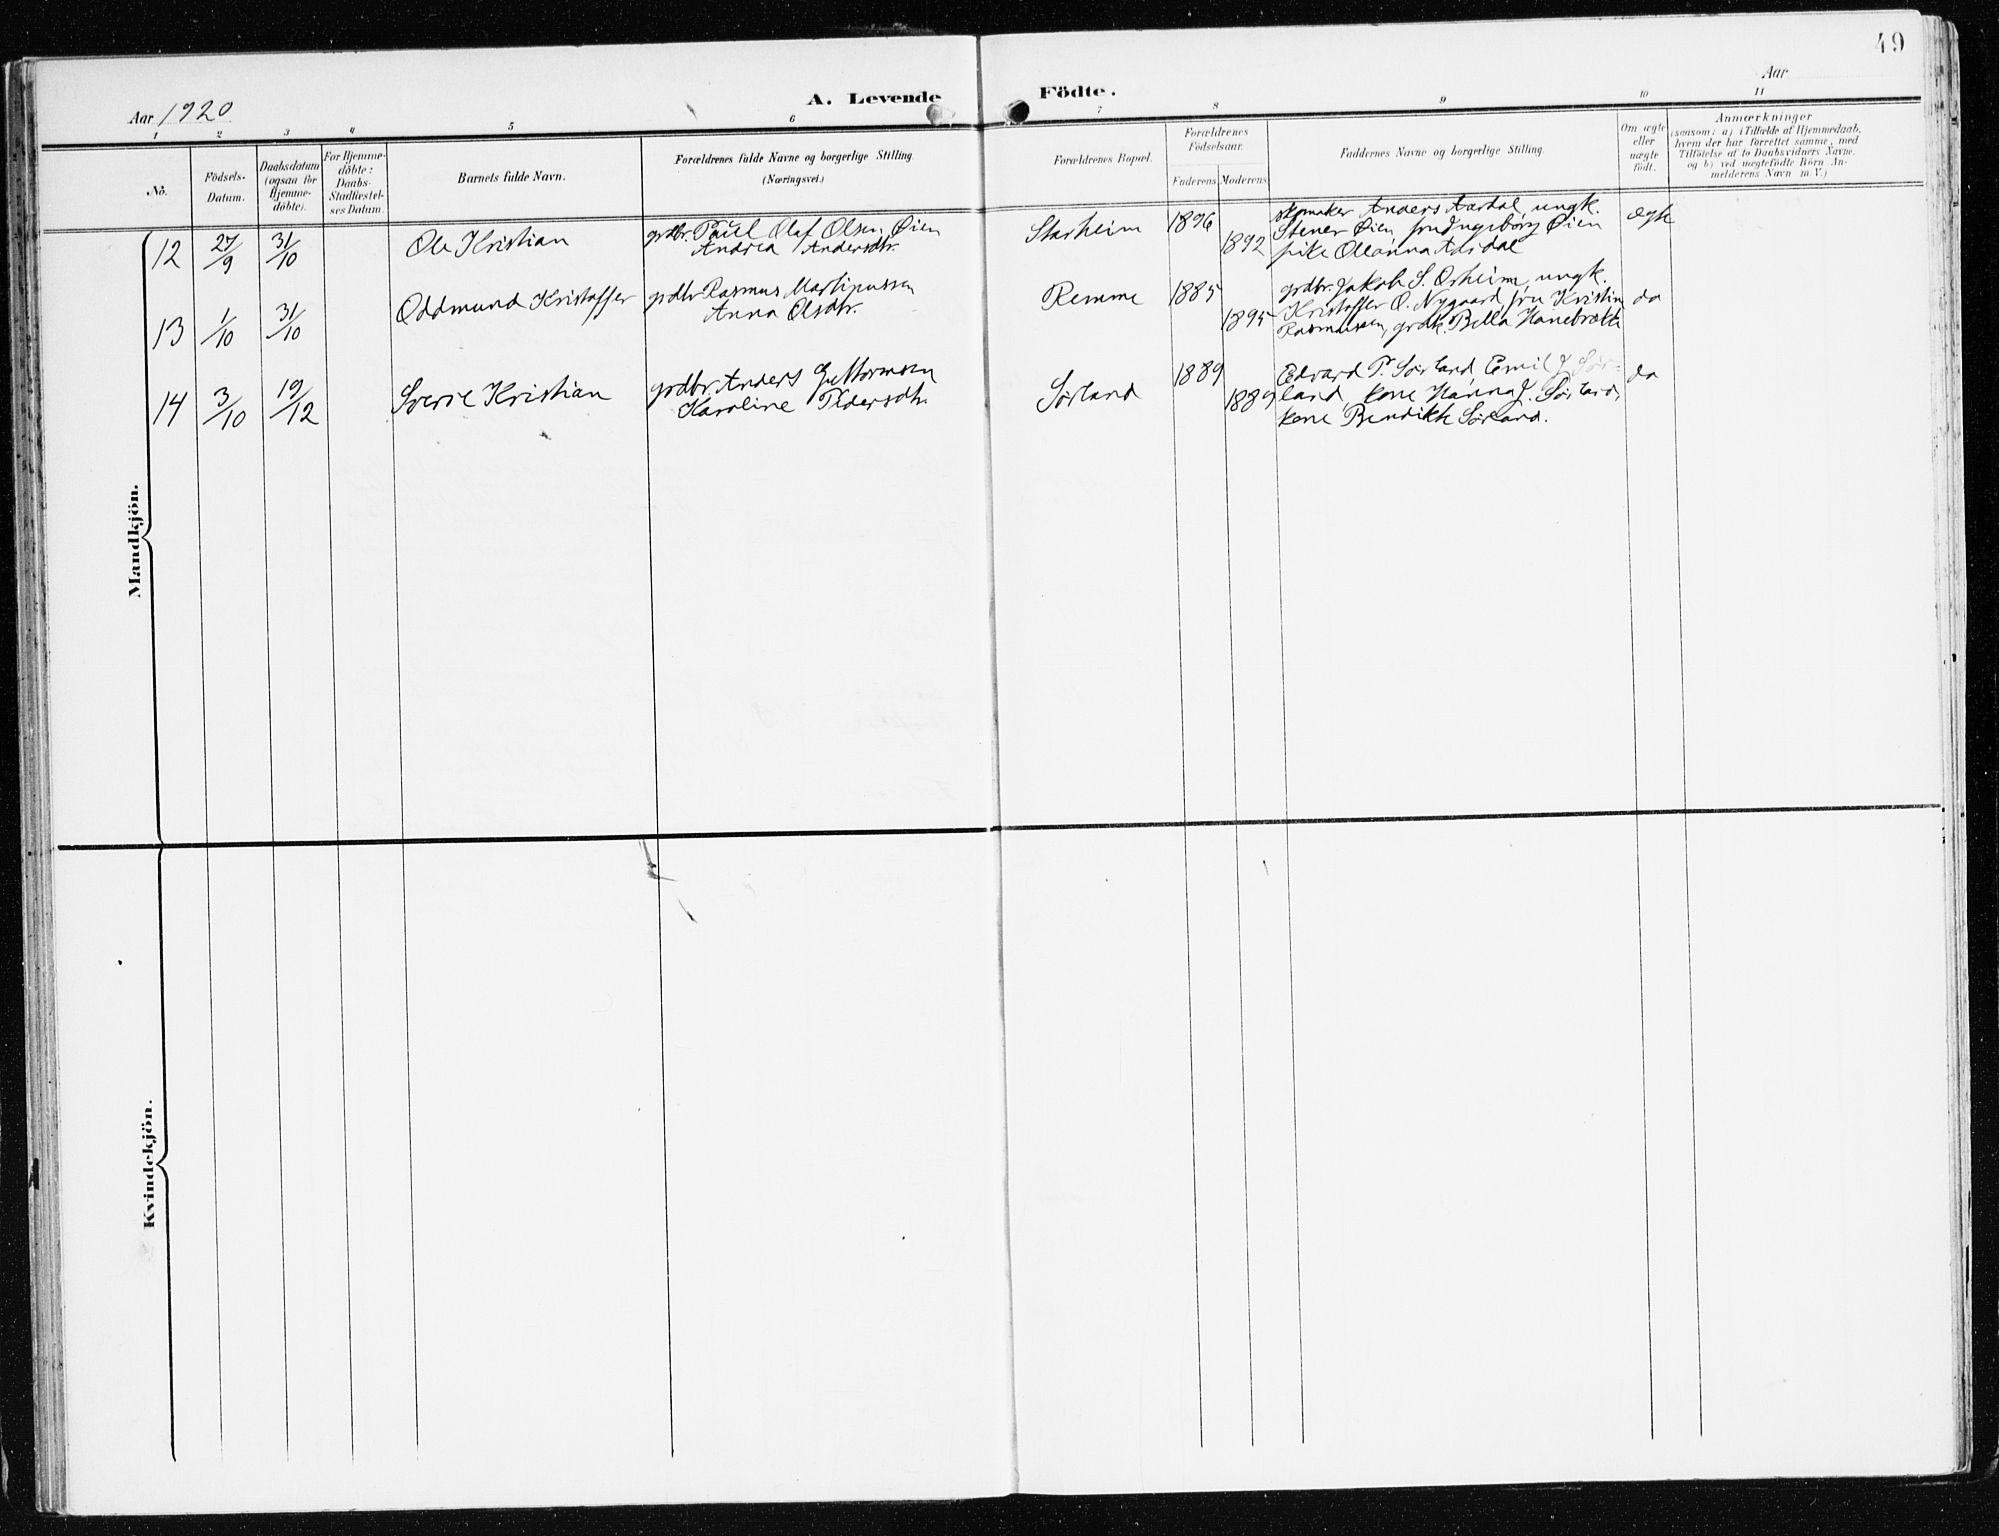 49
Aar 1920
A. Levende Födte.
Aar
1 2 3 4 5 6 7 8 9 10 11
No.
Födsels-
Datum.
Daabsdatum
(ogsaa for
Hjemme-
döbte).
For Hjemme-
döbte:
Daabs-
Stadfæstel-
ses Datum.
Barnets fulde Navn.
Forældrenes fulde Navne og borgerlige Stilling.
(Næringsvei.)
Forældrenes Bopæl.
Forældrenes
Födselsaar.
Faderens. Moderens.
Faddernes Navne og borgerlige Stilling.
Om ægte
eller
uægte
födt.
Anmærkninger
(saasom: a) i Tilfælde af Hjemmedaab,
hvem der har forrettet samme, med
Tilföielse af to Daabsvidners Navne,
og b) ved uægtefödte Börn An-
melderens Navn m. V.)
Mandkjön.
12 27/9 31/10 Ole Kristian
grdbr. Paul Olaf Olsen Øien
Andrea Andersdtr.
Starheim 1896 1892
skomaker Anders Aardal ungk.
Stener Øien fru Ingeborg Øien
pike Oleanna Aardal
ægte
13 1/10 31/10 Oddmund Kristoffer
grdbr Rasmus Martinussen
Anna Olsdtr.
Remme 1885 1895
grdbr. Jakob S. Orheim, ungk.
Kristoffer O. Nygaard, fru Kristin
Rasmussen, grdk. Bella Hanebrække
da
14 3/10 19/12 Sverre Kristian
grdbr. Anders Guttormsen
Karoline Pedersdtr.
Sørland 1889 1889
Edvard P. Sørland Emil J. Sør-
land, kone Hanna J. Sørland,
kone Bendikte Sørland.
da
Kvindekjön.